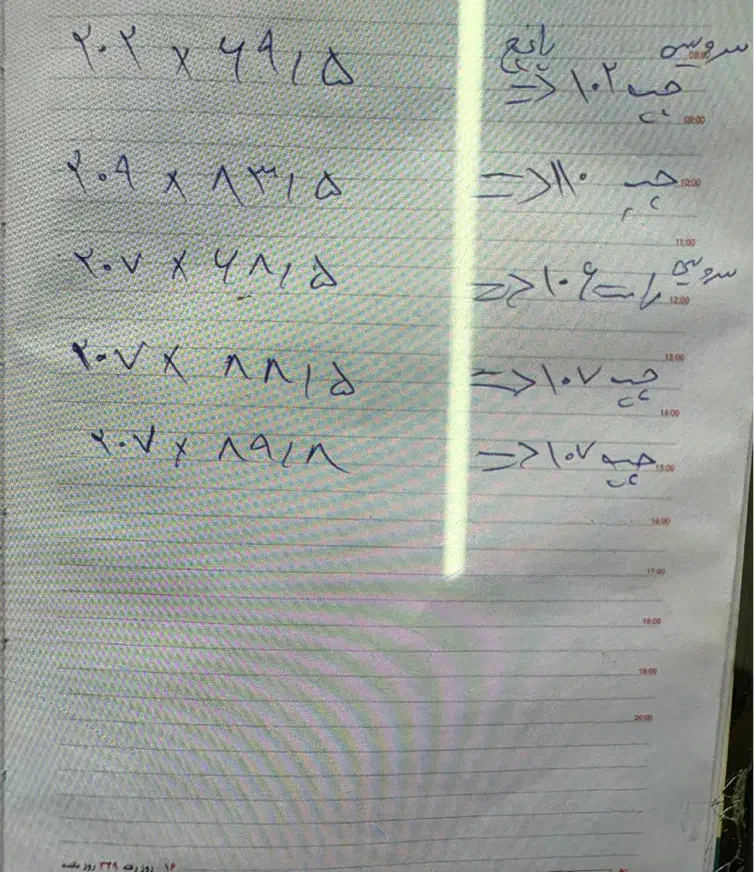 سرویس
چپ ۱۰۲ <= ۲۰۲ × ۶۹/۵
چپ ۱۱۰ <= ۲۰۹ × ۸۳/۵
سرویس
راست ۱۰۶ <= ۲۰۷ × ۶۸/۵
چپ ۱۰۷ <= ۲۰۷ × ۸۸/۵
چپ ۱۰۷ <= ۲۰۷ × ۸۹/۸
08:00
09:00
10:00
11:00
12:00
13:00
14:00
15:00
16:00
17:00
18:00
19:00
20:00
۱۶ روز رفته ۳۴۹ روز مانده